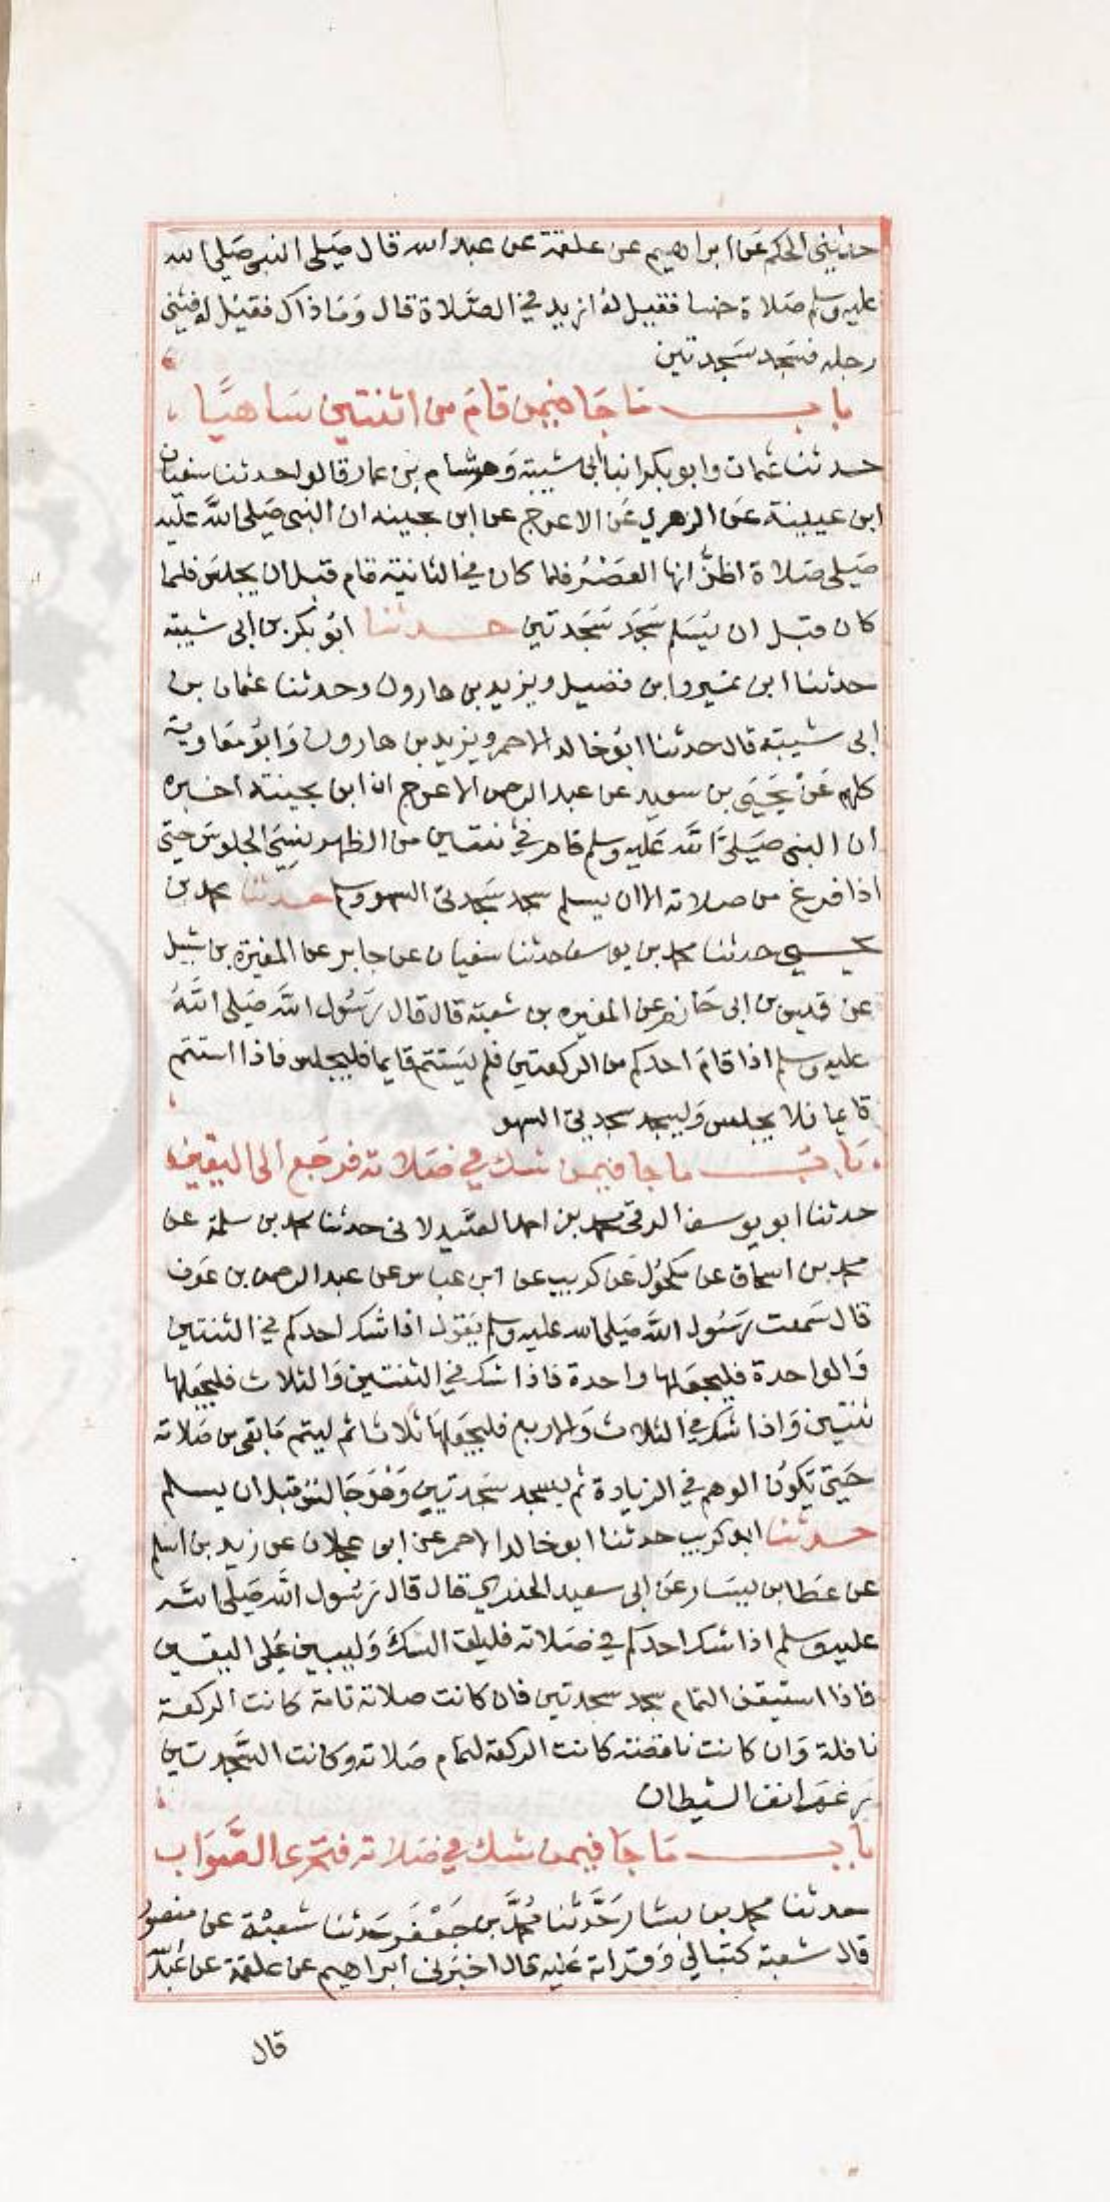 حدثني الحكم عن ابراهيم عن علقمة عن عبد الله قال صلى النبي صلى الله
عليه وسلم صلاة خمسا فقيل له ازيد في الصلاة قال وما ذاك فقيل له فثنى
رجله فسجد سجدتين
باب ما جا فيمن قام من اثنتين ساهيا
حدثنا عثمان وابو بكر ابنا ابي شيبة وهشام بن عمار قالوا حدثنا سفيان
ابن عيينة عن الزهري عن الاعرج عن ابن بحينه ان النبي صلى الله عليه
صلى صلاة اظن انها العصر فلما كان في الثانية قام قبل ان يجلس فلما
كان قبل ان يسلم سجد سجدتين حدثنا ابو بكر بن ابي شيبة
حدثنا ابن نمير وابن فضيل ويزيد بن هارون وحدثنا عثمان بن
ابي شيبة قال حدثنا ابو خالد الاحمر ويزيد بن هارون وابو معاوية
كلهم عن يحيى بن سعيد عن عبد الرحمن الاعرج ان ابن بحينة اخبره
ان النبي صلى الله عليه وسلم قام في ثنتين من الظهر نسي الجلوس حتى
اذا فرغ من صلاته الا ان يسلم سجد سجدتي السهو وسلم حدثنا محمد بن
يحيى حدثنا محمد بن يوسف حدثنا سفيان عن جابر عن المغيرة بن شبيل
عن قيس بن ابي حازم عن المغيره بن شعبة قال قال رسول الله صلى الله
عليه وسلم اذا قام احدكم من الركعتين فلم يستتم قايما فليجلس فاذا استتم
قايما فلا يجلس وليسجد سجدتي السهو
باب ما جا فيمن شك في صلاته فرجع الى اليقين
حدثنا ابو يوسف الرقي محمد بن احمد الصيدلاني حدثنا محمد بن سلمة عن
محمد بن اسحاق عن مكحول عن كريب عن ابن عباس عن عبد الرحمن بن عوف
قال سمعت رسول الله صلى الله عليه وسلم يقول اذا شك احدكم في الثنتين
والواحدة فليجعلها واحدة فاذا شك في الثنتين والثلاث فليجعلها
ثنتين واذا شك في الثلاث والاربع فليجعلها ثلاثا ثم ليتم ما بقي من صلاته
حتى يكون الوهم في الزيادة ثم يسجد سجدتين وهو جالس قبل ان يسلم
حدثنا ابو كريب حدثنا ابو خالد الاحمر عن ابن عجلان عن زيد بن اسلم
عن عطا بن يسار عن ابي سعيد الخدري قال قال رسول الله صلى الله
عليه وسلم اذا شك احدكم في صلاته فليلق الشك وليبين على اليقين
فاذا استيقن التمام سجد سجدتين فان كانت صلاته تامة كانت الركعة
نافلة وان كانت ناقصة كانت الركعة لتمام صلاته وكانت السجدتين
رغم انف الشيطان
باب ما جا فيمن شك في صلاته فتحرى الصواب
حدثنا محمد بن بشار حدثنا محمد بن جعفر حدثنا شعبة عن منصور
قال شعبة كتب الي وقراته عليه قال اخبرني ابراهيم عن علقمة عن عبد الله
قال